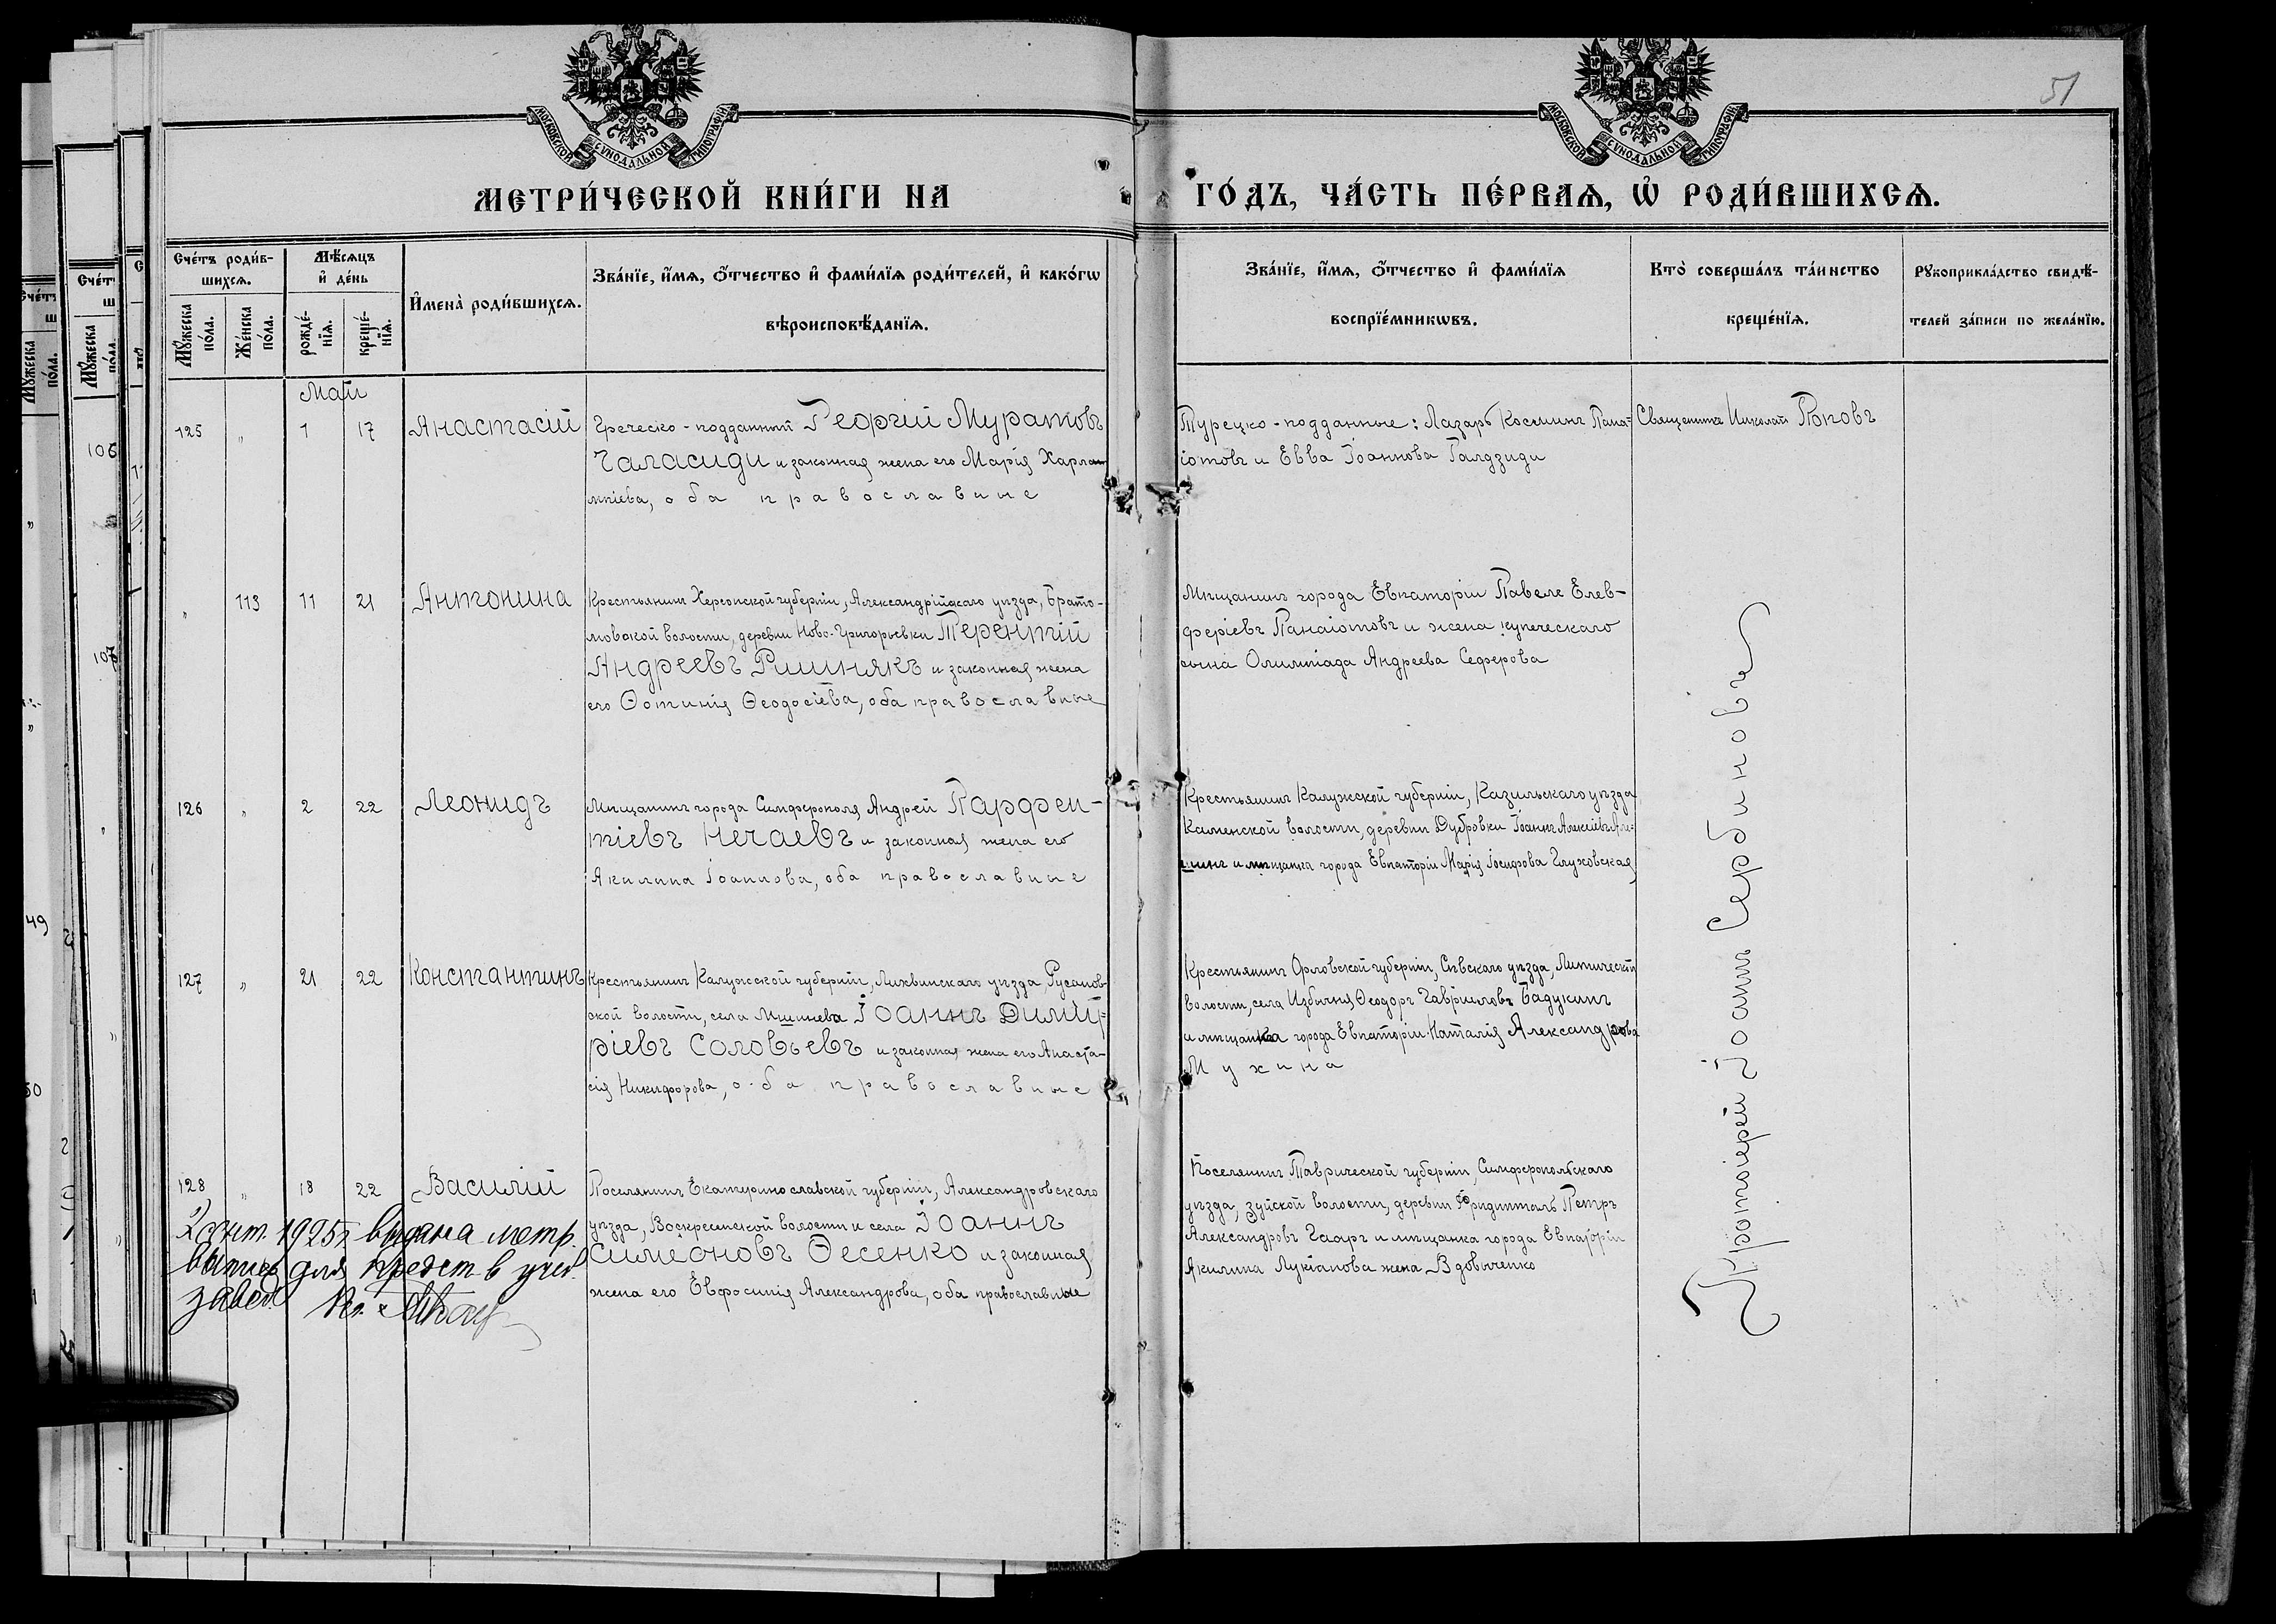 51
МОСКОВСКОЙ СѴНОДАЛЬНОЙ ТИПОГРАФІИ
МОСКОВСКОЙ СѴНОДАЛЬНОЙ ТИПОГРАФІИ
МЕТРИ́ЧЕСКОЙ КНИ́ГИ НА ГО́ДЪ, ЧА́СТЬ ПЕ́РВАѦ, Ѡ҆ РОДИ́ВШИХСѦ.
Сче́тъ роди́в-
шихсѧ.
Мꙋ́жеска
по́ла.
Же́нска
по́ла.
Мѣ́сѧцъ
и҆ де́нь
рожде́-
нїѧ.
креще́-
нїѧ.
И҆мена̀ роди́вшихсѧ.
Зва́нїе, и҆́мѧ, ѻ҆́тчество и҆ фами́лїѧ роди́телей, и҆ како́гѡ
вѣроисповѣ́данїѧ.
Зва́нїе, и҆́мѧ, ѻ҆́тчество и҆ фами́лїѧ
воспрїе́мникѡвъ.
Кто̀ соверша́лъ та́инство
креще́нїѧ.
Рꙋкоприкла́дство свидѣ́-
телей за́писи по жела́нїю.
Май
125 " 1 17 Анастасій
Греческо-подданный Георгій Муратовъ
Чаласиди и законная жена его Марія Харлам-
піева, оба православные
Турецко-подданные: Лазарь Косминъ Пана-
іотовъ и Евва Іоаннова Галдзиди
Священникъ Николай Поповъ
" 113 11 21 Антонина
Крестьянинъ Херсонской губерніи, Александрійскаго уѣзда, Брато-
любовской волости, деревни Ново-Григорьевки Терентій
Андреевъ Ришнякъ и законная жена
его Ѳотинія Ѳеодосіева, оба православные
Мѣщанинъ города Евпаторіи Павелъ Елев-
феріевъ Панаіотовъ и жена купеческаго
сына Олимпіада Андреева Сеферова
126 " 2 22 Леонидъ
Мѣщанинъ города Симферополя Андрей Парфен-
тіевъ Нечаевъ и законная жена его
Акилина Іоаннова, оба православные
Крестьянинъ Калужской губерніи, Казильскаго уѣзда
Каменской волости, деревни Дубровки Іоаннъ Алексіевъ Але-
шинъ и мѣщанка города Евпаторіи Марія Іосифова Глуховская
127 " 21 22 Константинъ
Крестьянинъ Калужской губерніи, Лихвинскаго уѣзда, Русанов-
ской волости, села Мишнева Іоаннъ Димит-
ріевъ Соловьевъ и законная жена его Анаста-
сія Никифорова, оба православные
Крестьянинъ Орловской губерніи, Сѣвскаго уѣзда, Литической
волости, села Избичня Ѳеодоръ Гавріиловъ Бадукинъ
и мѣщанка города Евпаторіи Наталія Александрова
Мухина
128 " 18 22 Василій
Поселянинъ Екатеринославской губерніи, Александровскаго
уѣзда, Воскресенской волости и села Іоаннъ
Симеоновъ Ѳесенко и законная
жена его Евфросинія Александрова, оба православные
Поселянинъ Таврической губерніи, Симферопольскаго
уѣзда, Зуйской волости, деревни Фридинталь Петръ
Александровъ Гааръ и мѣщанка города Евпаторіи
Акилина Лукіанова жена Вдовыченко
Протоіерей Іоаннъ Сербиновъ
1925 г. выдана метр.
выпись для предст в учеб.
завед.